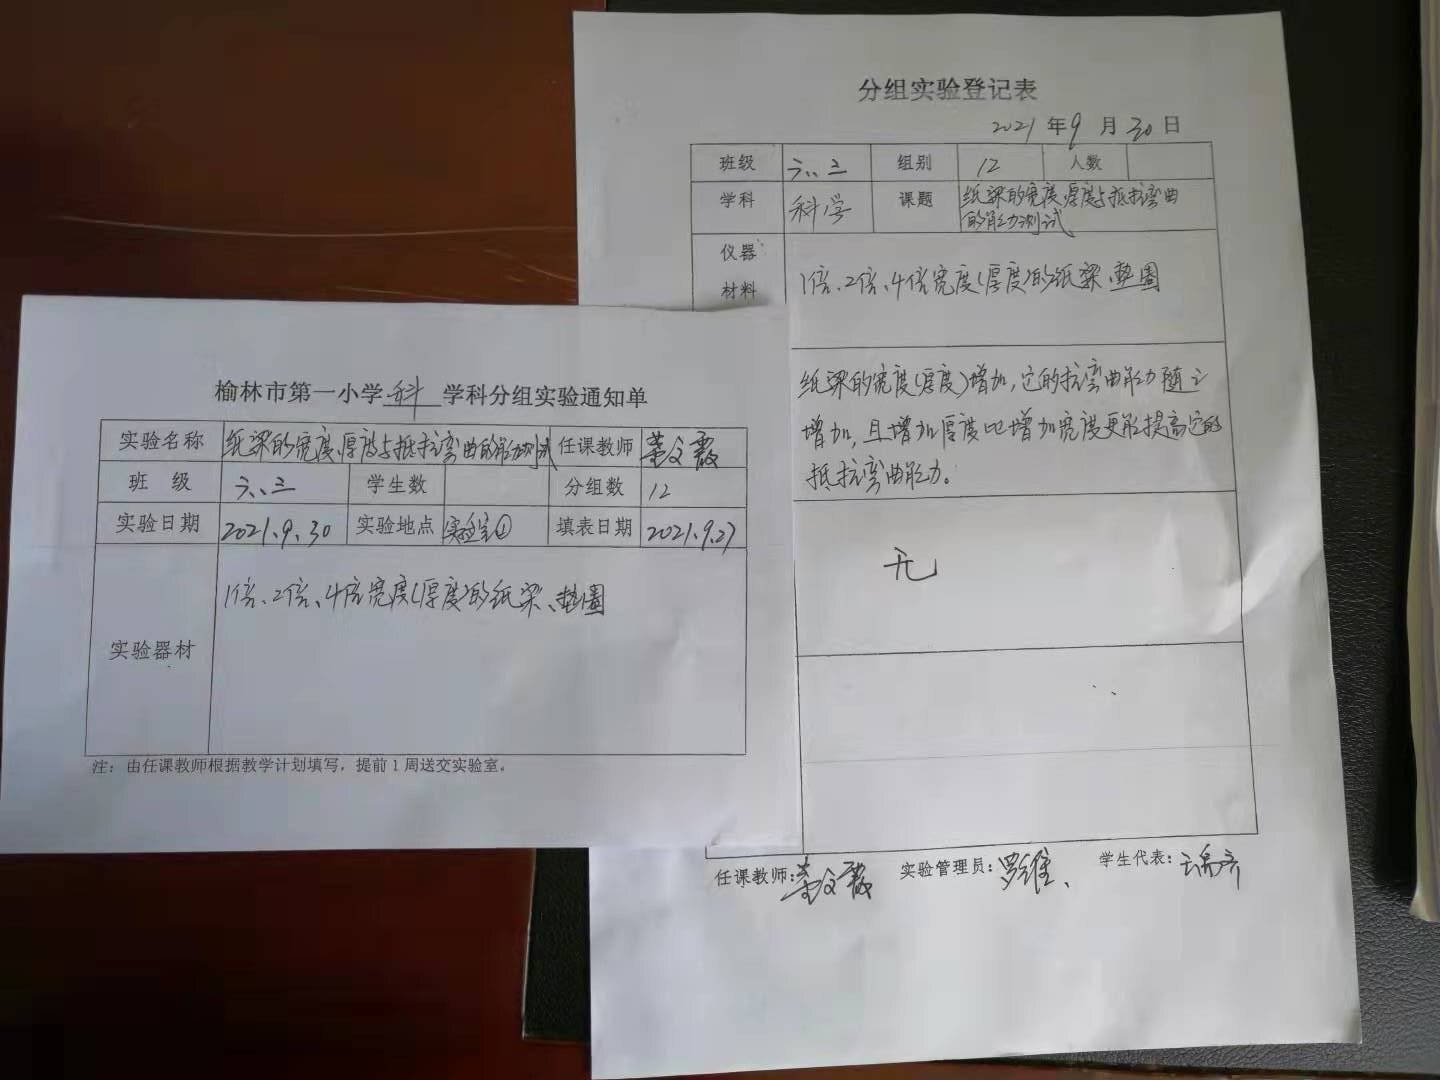 分组实验登记表
2021年9月30日
班级 六、三 组别 12 人数
学科 科学 课题 纸梁的宽度、厚度与抵抗弯曲
的能力测试
仪器
材料
1倍、2倍、4倍宽度(厚度)的纸梁、垫圈
纸梁的宽度(厚度)增加,它的抗弯曲能力随之
增加,且增加厚度比增加宽度更能提高它的
抵抗弯曲能力。
无
任课教师: 实验管理员:罗维、 学生代表:
榆林市第一小学科学科分组实验通知单
实验名称 纸梁的宽度、厚度与抵抗弯曲的能力测试 任课教师
班 级 六、三 学生数 分组数 12
实验日期 2021、9、30 实验地点 实验室① 填表日期 2021、9、27
实验器材 1倍、2倍、4倍宽度(厚度)的纸梁、垫圈
注: 由任课教师根据教学计划填写,提前1周送交实验室。